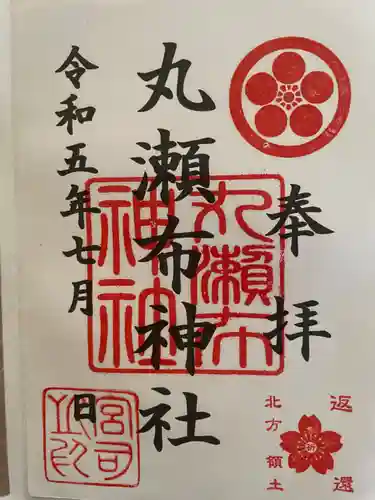 奉拝
丸瀬布神社
令和五年七月 日
丸瀬布神社
宮司之印
返還
北方領土
祈